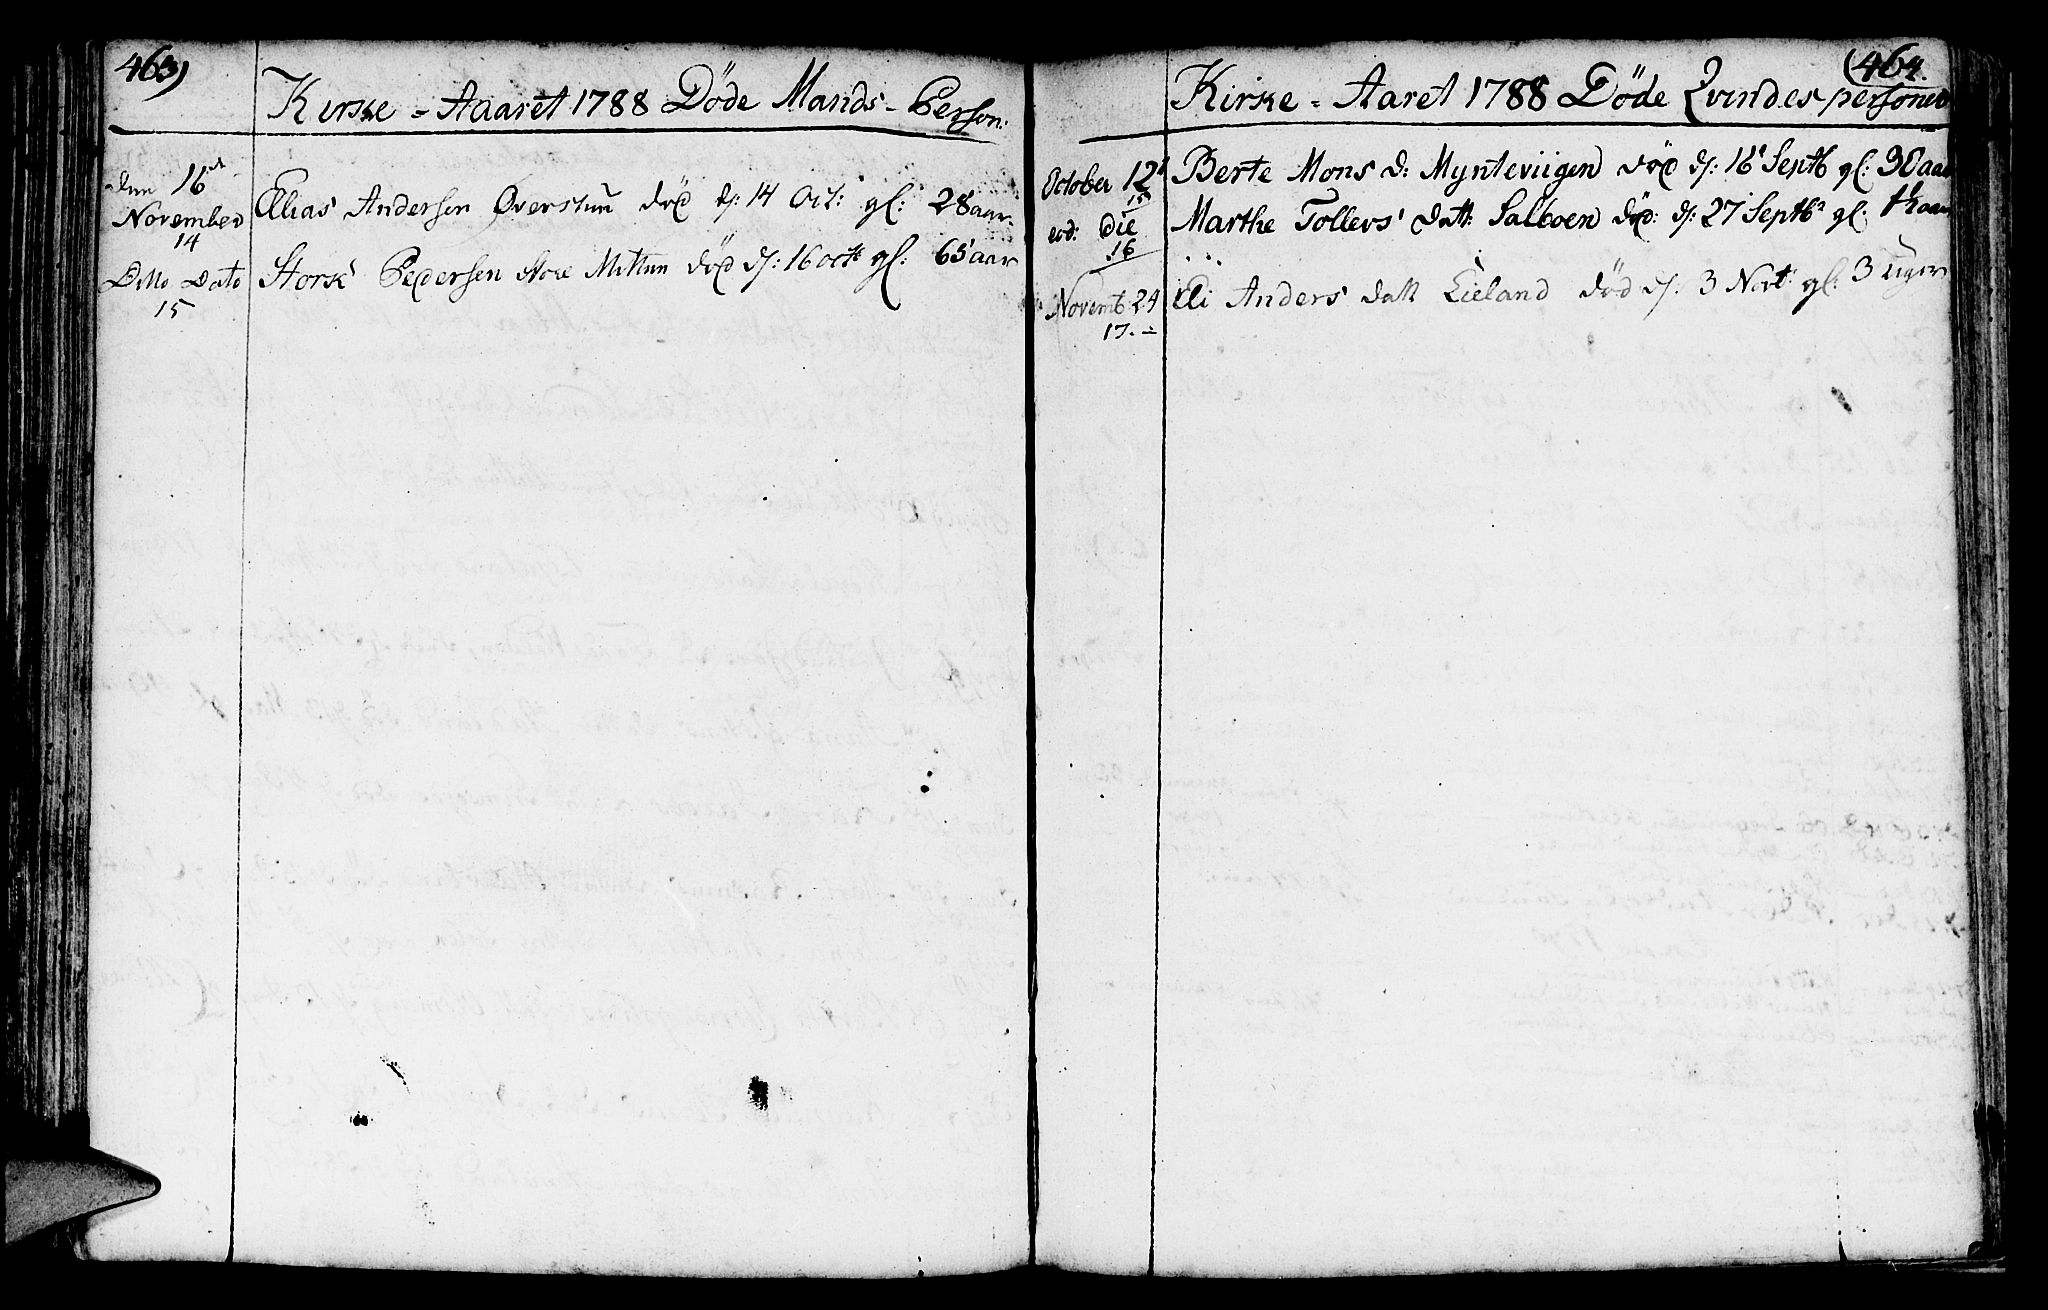 463)
Kirke-Aaaret 1788 Döde Mands-Person:
den 16d
November
14
Elias Andersen Øverstun död d: 14 Oct: gl: 28 aar
Ditto Dato
15
Stork Pedersen store Mitun död d: 16 octb gl: 65 aar
(464.
Kirke-Aaret 1788 Döde Qvindes personer
October 12t
15
Berte Mons d: Mynteviigen död d: 16 Septb gl: 30 aar
eod: Die
16
Marthe Tollers' datt: Salboen död: d: 27 Septbr gl:
Novemb 24
17.-
Eli Anders datt Lieland död d: 3 Novb gl: 3 uger